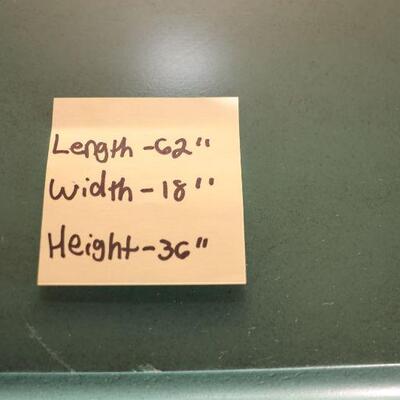 Length - 62"
Width - 18"
Height - 36"